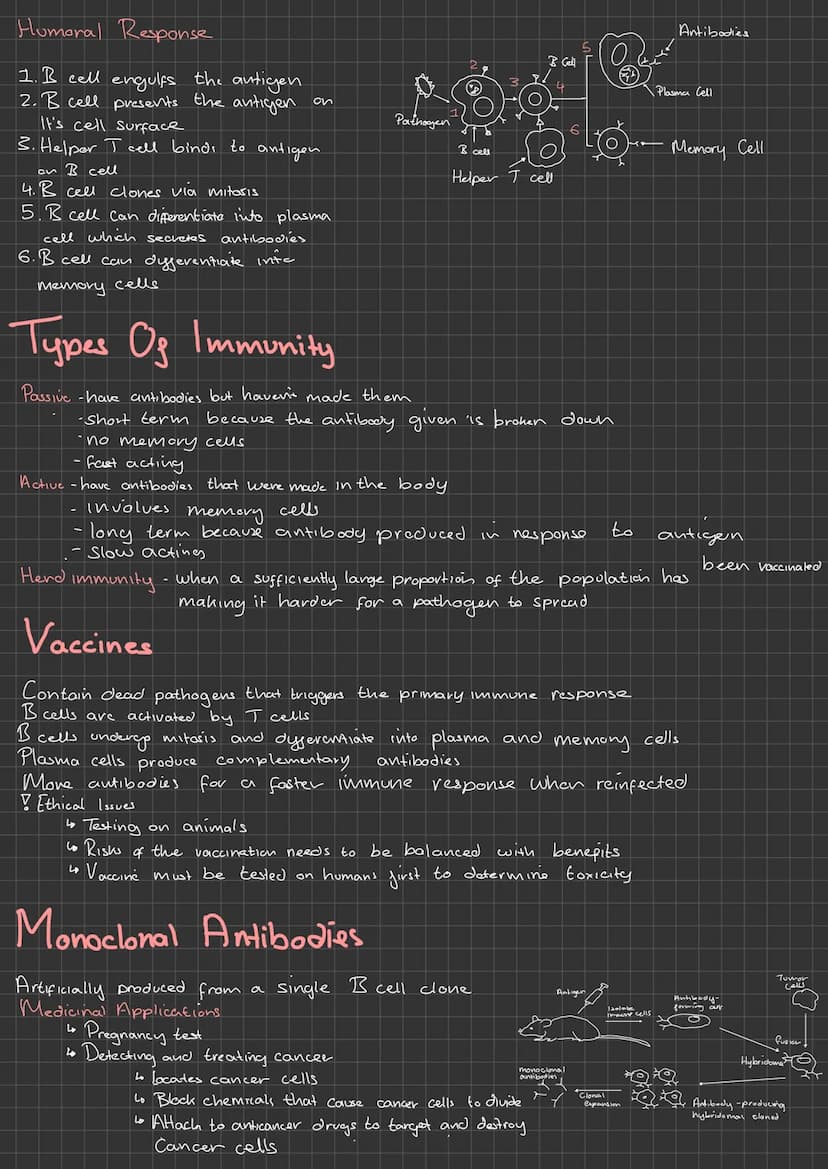 Humoral Response
1. B cell engulfs the antigen
2. B cell presents the antigen on
It's cell surface
3. Helper T cell binds to antigen
on B cell
4. B cell clones via mitosis
5. B cell can differentiate into plasma
cell which secretes antibodies
6. B cell can differentiate into
memory cells
Pathogen
1
2
B cell
3
B Cell
4
Helper T cell
5
Antibodies
Plasma Cell
6
Memory Cell
Types Of Immunity
Passive - have antibodies but haven't made them
- short term because the antibody given is broken down
- no memory cells
- fast acting
Active - have antibodies that were made in the body
- involves memory cells
- long term because antibody produced in response to antigen
- slow acting
Herd immunity - when a sufficiently large proportion of the population has been vaccinated
making it harder for a pathogen to spread
Vaccines
Contain dead pathogens that triggers the primary immune response
B cells are activated by T cells
B cells undergo mitosis and differentiate into plasma and memory cells
Plasma cells produce complementary antibodies
More antibodies for a faster immune response when reinfected
! Ethical Issues
↳ Testing on animals
↳ Risks of the vaccination needs to be balanced with benefits
↳ Vaccine must be tested on humans first to determine toxicity
Monoclonal Antibodies
Artificially produced from a single B cell clone
Medicinal Applications
↳ Pregnancy test
↳ Detecting and treating cancer
↳ locates cancer cells
↳ Block chemicals that cause cancer cells to divide
↳ Attach to anticancer drugs to target and destroy
Cancer cells
Antigen
Isolate
Immune cells
Antibody-
forming
Tumor
Cells
Fusion
Hybridoma
Antibody-producing
hybridomas cloned
Clonal
Expansion
monoclonal
antibodies